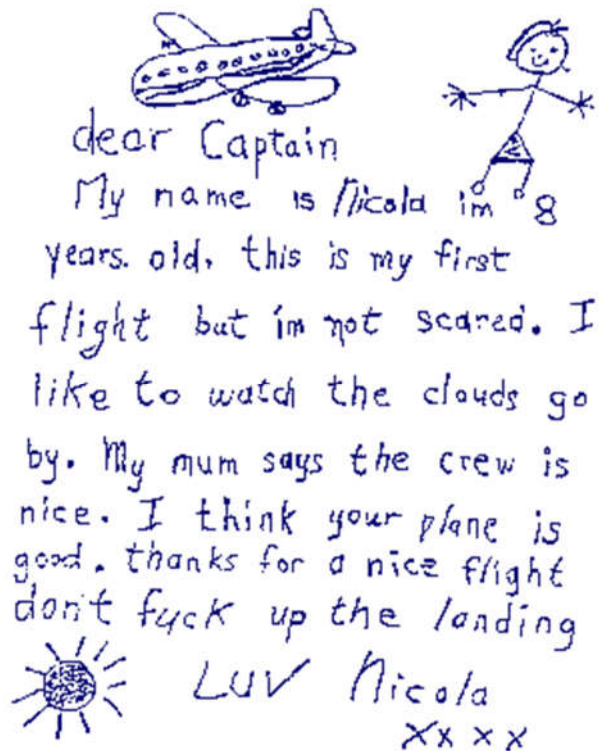 dear Captain
My name is Nicola im 8
years. old, this is my first
flight but im not scared. I
like to watch the clouds go
by. My mum says the crew is
nice. I think your plane is
good. thanks for a nice flight
don't fuck up the landing
LUV Nicola
xxxx